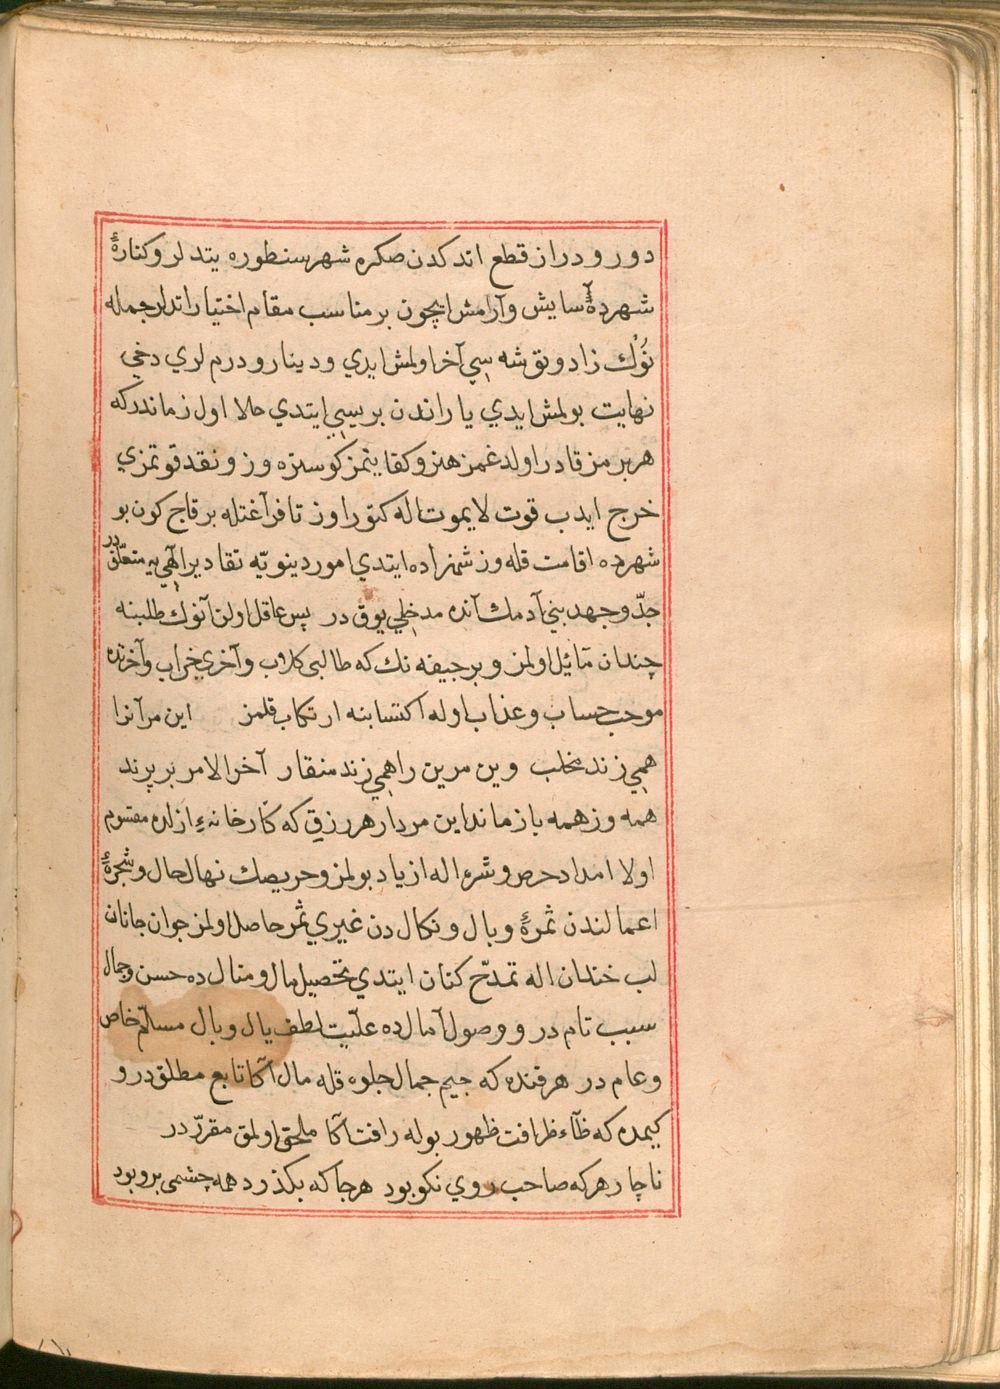 دور و دراز قطع اتدكدن صكره شهر سنطوره يتدلر و كنارهٔ
شهرده آسايش و آرامش ايچون بر مناسب مقام اختيار اتدلر جمله
نُوُك زاد و توشه سي آخر اولمش ايدي و دينار و درم لري دخي
نهايت بولمش ايدي يا راندن بريسي ايتدي حالا اول زماندركه
هر برمز قادر اولدغمز هنر و كفايتمز كوستره وز و نقد قوتمزي
خرج ايدب قوت لا يموت اله كتوراوز تا فراغتله بر قاج كون بو
شهرده اقامت قله وز شهزاده ايتدي امور دنيويّه تقادير الٓهي يه متعلّق در
جدّ و جهد بني آدمك آنده مدخلي يوق در پس عاقل اولن آنوك طلبنه
چندان مائيل اولمز و بر جيفه نك كه طالبى كلاب و آخري خراب و آخرتده
موجب حساب و عذاب اوله اكتسابنه ارتكاب قلمز اين مر آنرا
همي زند مخلب وين مرين را همي زند منقار آخر الامر بر پرند
همه وز همه باز ماند اين مردار هر رزق كه كارخانهء ازلده مقسوم
اولا امداد حرص و شره اله ازياد بولمز و حريصك نهال حال و شجرهٔ
اعمالندن ثمرهٔ وبال و نكال دن غيري ثمر حاصل اولمز جوان جانان
لب خندان اله تمدّح كنان ايتدي تحصيل مال و منال ده حسن و جمال
سبب تام در و وصول آمال ده علّيت لطف يال و بال مسلّم خاص
و عام در هر قنده كه جيم جمال جلوه قله مال آكا تابع مطلق در و
كيمده كه ظآء ظرافت ظهور بوله رافت آكا ملحق اولمق مقرّر در
ناچار هر كه صاحب روي نكو بود هر جا كه بكذرد همه چشمى برو بود